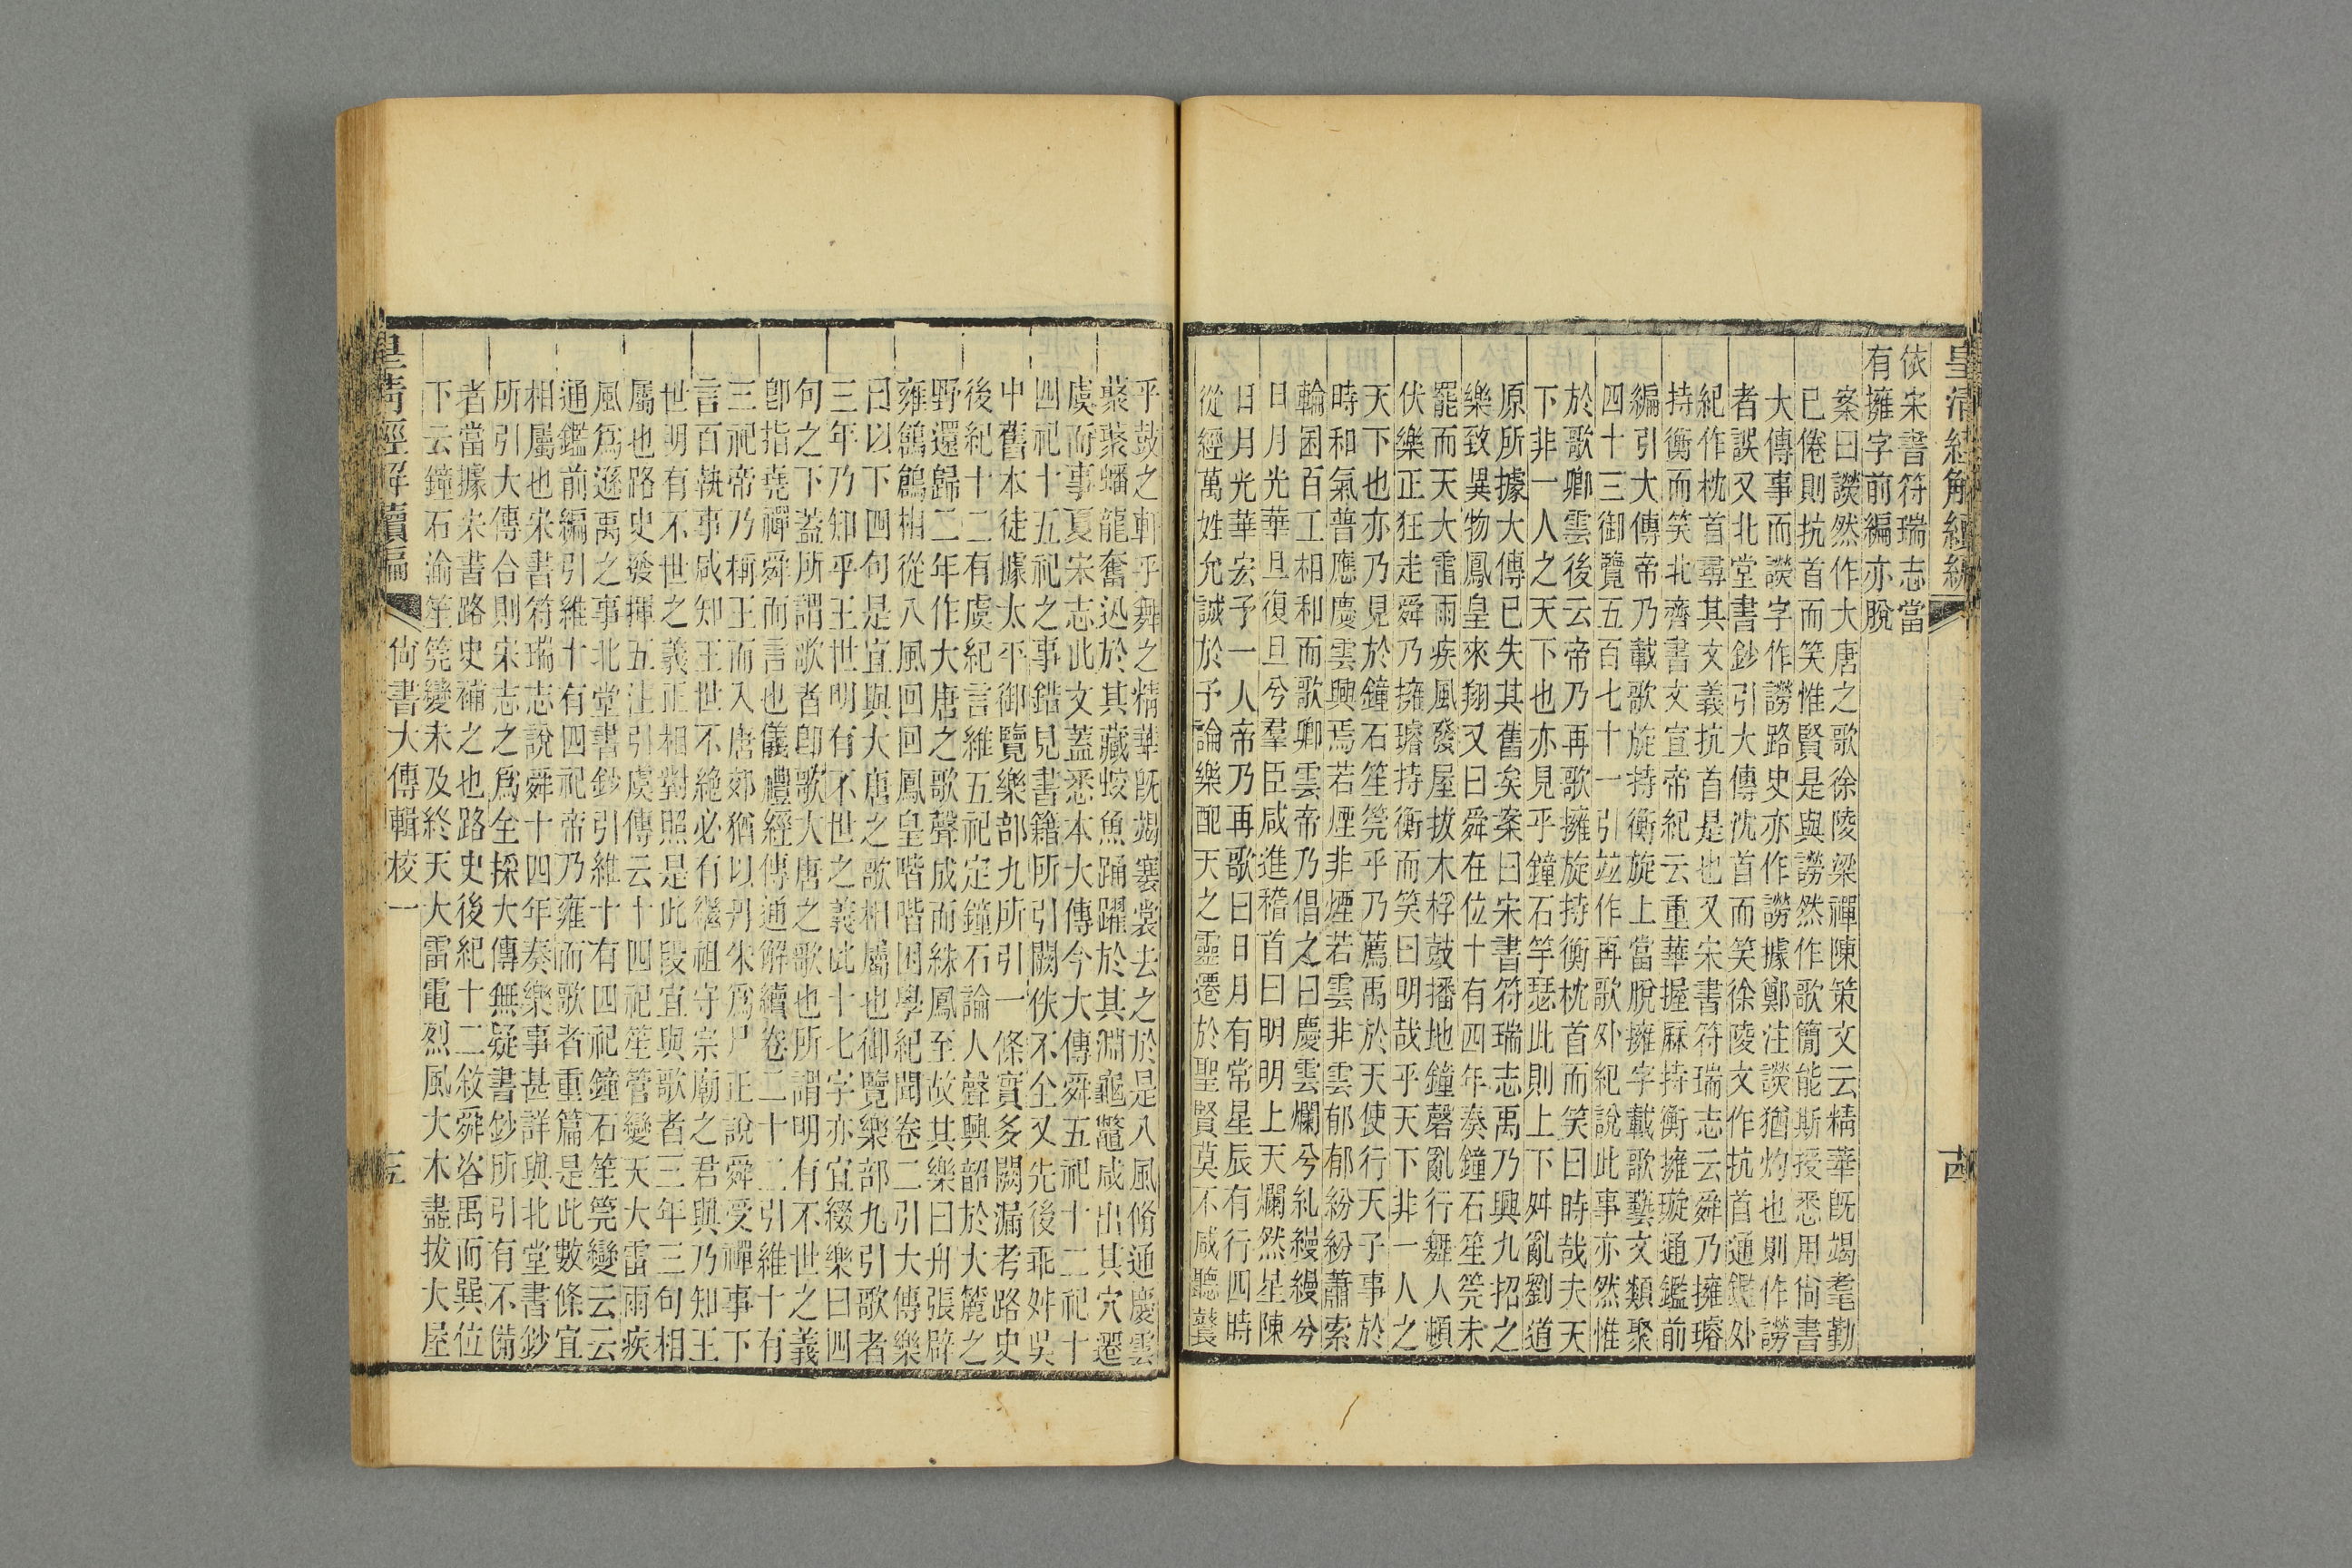 皇清經解續編
古
依宋書符瑞志當
有擁字前編亦脫
案曰謨然作大唐之歌徐陵梁禪陳策文云精華旣竭耄勤
已倦則抗首而笑惟賢是與謗然作歌簡能斯授悉用尙書
大傳事而謨字作謗路史亦作謗據鄭注謨猶灼也則作謗
者誤又北堂書鈔引大傳沈首而笑徐陵文作抗首通鑑外
紀作枕首尋其文義抗首是也又宋書符瑞志云舜乃擁璿
持衡而笑北齊書文宣帝紀云重華握厤持衡擁璇通鑑前
編引大傳帝乃載歌旋持衡旋上當脫擁字載歌藝文類聚
四十三御覽五百七十一引竝作再歌外紀說此事亦然惟
於歌卿雲後云帝乃再歌擁旋持衡枕首而笑曰時哉夫天
下非一人之天下也亦見乎鐘石竽瑟此則上下舛亂劉道
原所據大傳已失其舊矣案曰宋書符瑞志禹乃興九招之
樂致異物鳳皇來翔又曰舜在位十有四年奏鐘石笙筦未
罷而天大雷雨疾風發屋拔木桴鼓播地鐘磬亂行舞人頓
伏樂正狂走舜乃擁璿持衡而笑曰明哉乎天下非一人之
天下也亦乃見於鐘石笙筦乎乃薦禹於天使行天子事於
時和氣普應慶雲興焉若煙非煙若雲非雲郁郁紛紛蕭索
輪囷百工相和而歌卿雲帝乃倡之曰慶雲爛兮糺縵縵兮
日月光華旦復旦兮羣臣咸進稽首曰明明上天爛然星陳
日月光華宏予一人帝乃再歌曰日月有常星辰有行四時
從經萬姓允誠於予論樂配天之靈遷於聖賢莫不咸聽鼚
乎鼓之軒乎舞之精華旣竭褰裳去之於是八風脩通慶雲
藂聚蟠龍奮迅於其藏蛟魚踊躍於其淵龜鼈咸出其穴遷
虞而事夏宋志此文蓋悉本大傳今大傳舜五祀十二祀十
四祀十五祀之事錯見書籍所引闕佚不全又先後乖舛吳
中舊本徒據太平御覽樂部九所引一條實多闕漏考路史
後紀十二有虞紀言維五祀定鐘石論人聲興韶於大麓之
野還歸二年作大唐之歌聲成而絑鳳至故其樂曰舟張辟
雍鶬鶬相從八風回回鳳皇喈喈困學紀聞卷二引大傳樂
曰以下四句是宜與大唐之歌相屬也御覽樂部九引歌者
三年乃知乎王世明有不世之義此十七字亦宜綴樂曰四
句之下蓋所謂歌者卽歌大唐之歌也所謂明有不世之義
卽指堯禪舜而言也儀禮經傳通解續卷二十二引維十有
三祀帝乃稱王而入唐郊猶以丹朱爲尸正說舜受禪事下
言百執事咸知王世不絶必有繼祖守宗廟之君與乃知王
世明有不世之義正相對照是此段宜與歌者三年三句相
屬也路史發揮五注引虞傳云十四祀笙管變天大雷雨疾
風爲遜禹之事北堂書鈔引維十有四祀鐘石笙筦變云云
通鑑前編引維十有四祀帝乃雍而歌者重篇是此數條宜
相屬也宋書符瑞志說舜十四年奏樂事甚詳與北堂書鈔
所引大傳合則宋志之爲全採大傳無疑書鈔所引有不備
者當據宋書路史補之也路史後紀十二敘舜咨禹而巽位
下云鐘石渝笙筦變未及終天大雷電烈風大木盡拔大屋
皇淸經解續編
尙書大傳輯校一